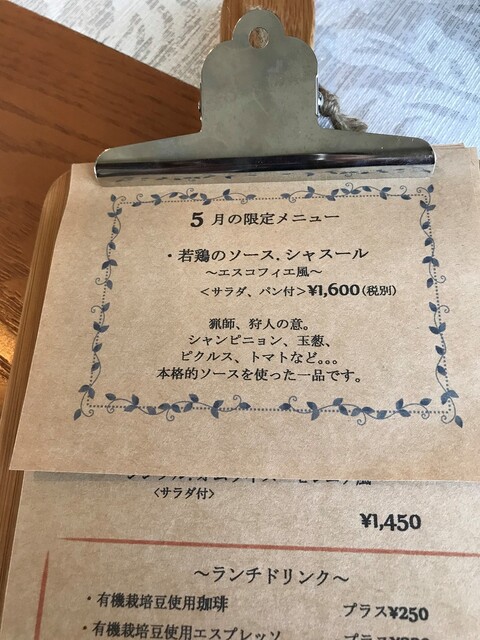 5月の限定メニュー
・若鶏のソース.シャスール
～エスコフィエ風～
＜サラダ、パン付＞¥1,600(税別)
猟師、狩人の意。
シャンピニョン、玉葱、
ピクルス、トマトなど。。。
本格的ソースを使った一品です。
＜サラダ付＞
¥1,450
～ランチドリンク～
・有機栽培豆使用珈琲 プラス¥250
・有機栽培豆使用エスプレッソ